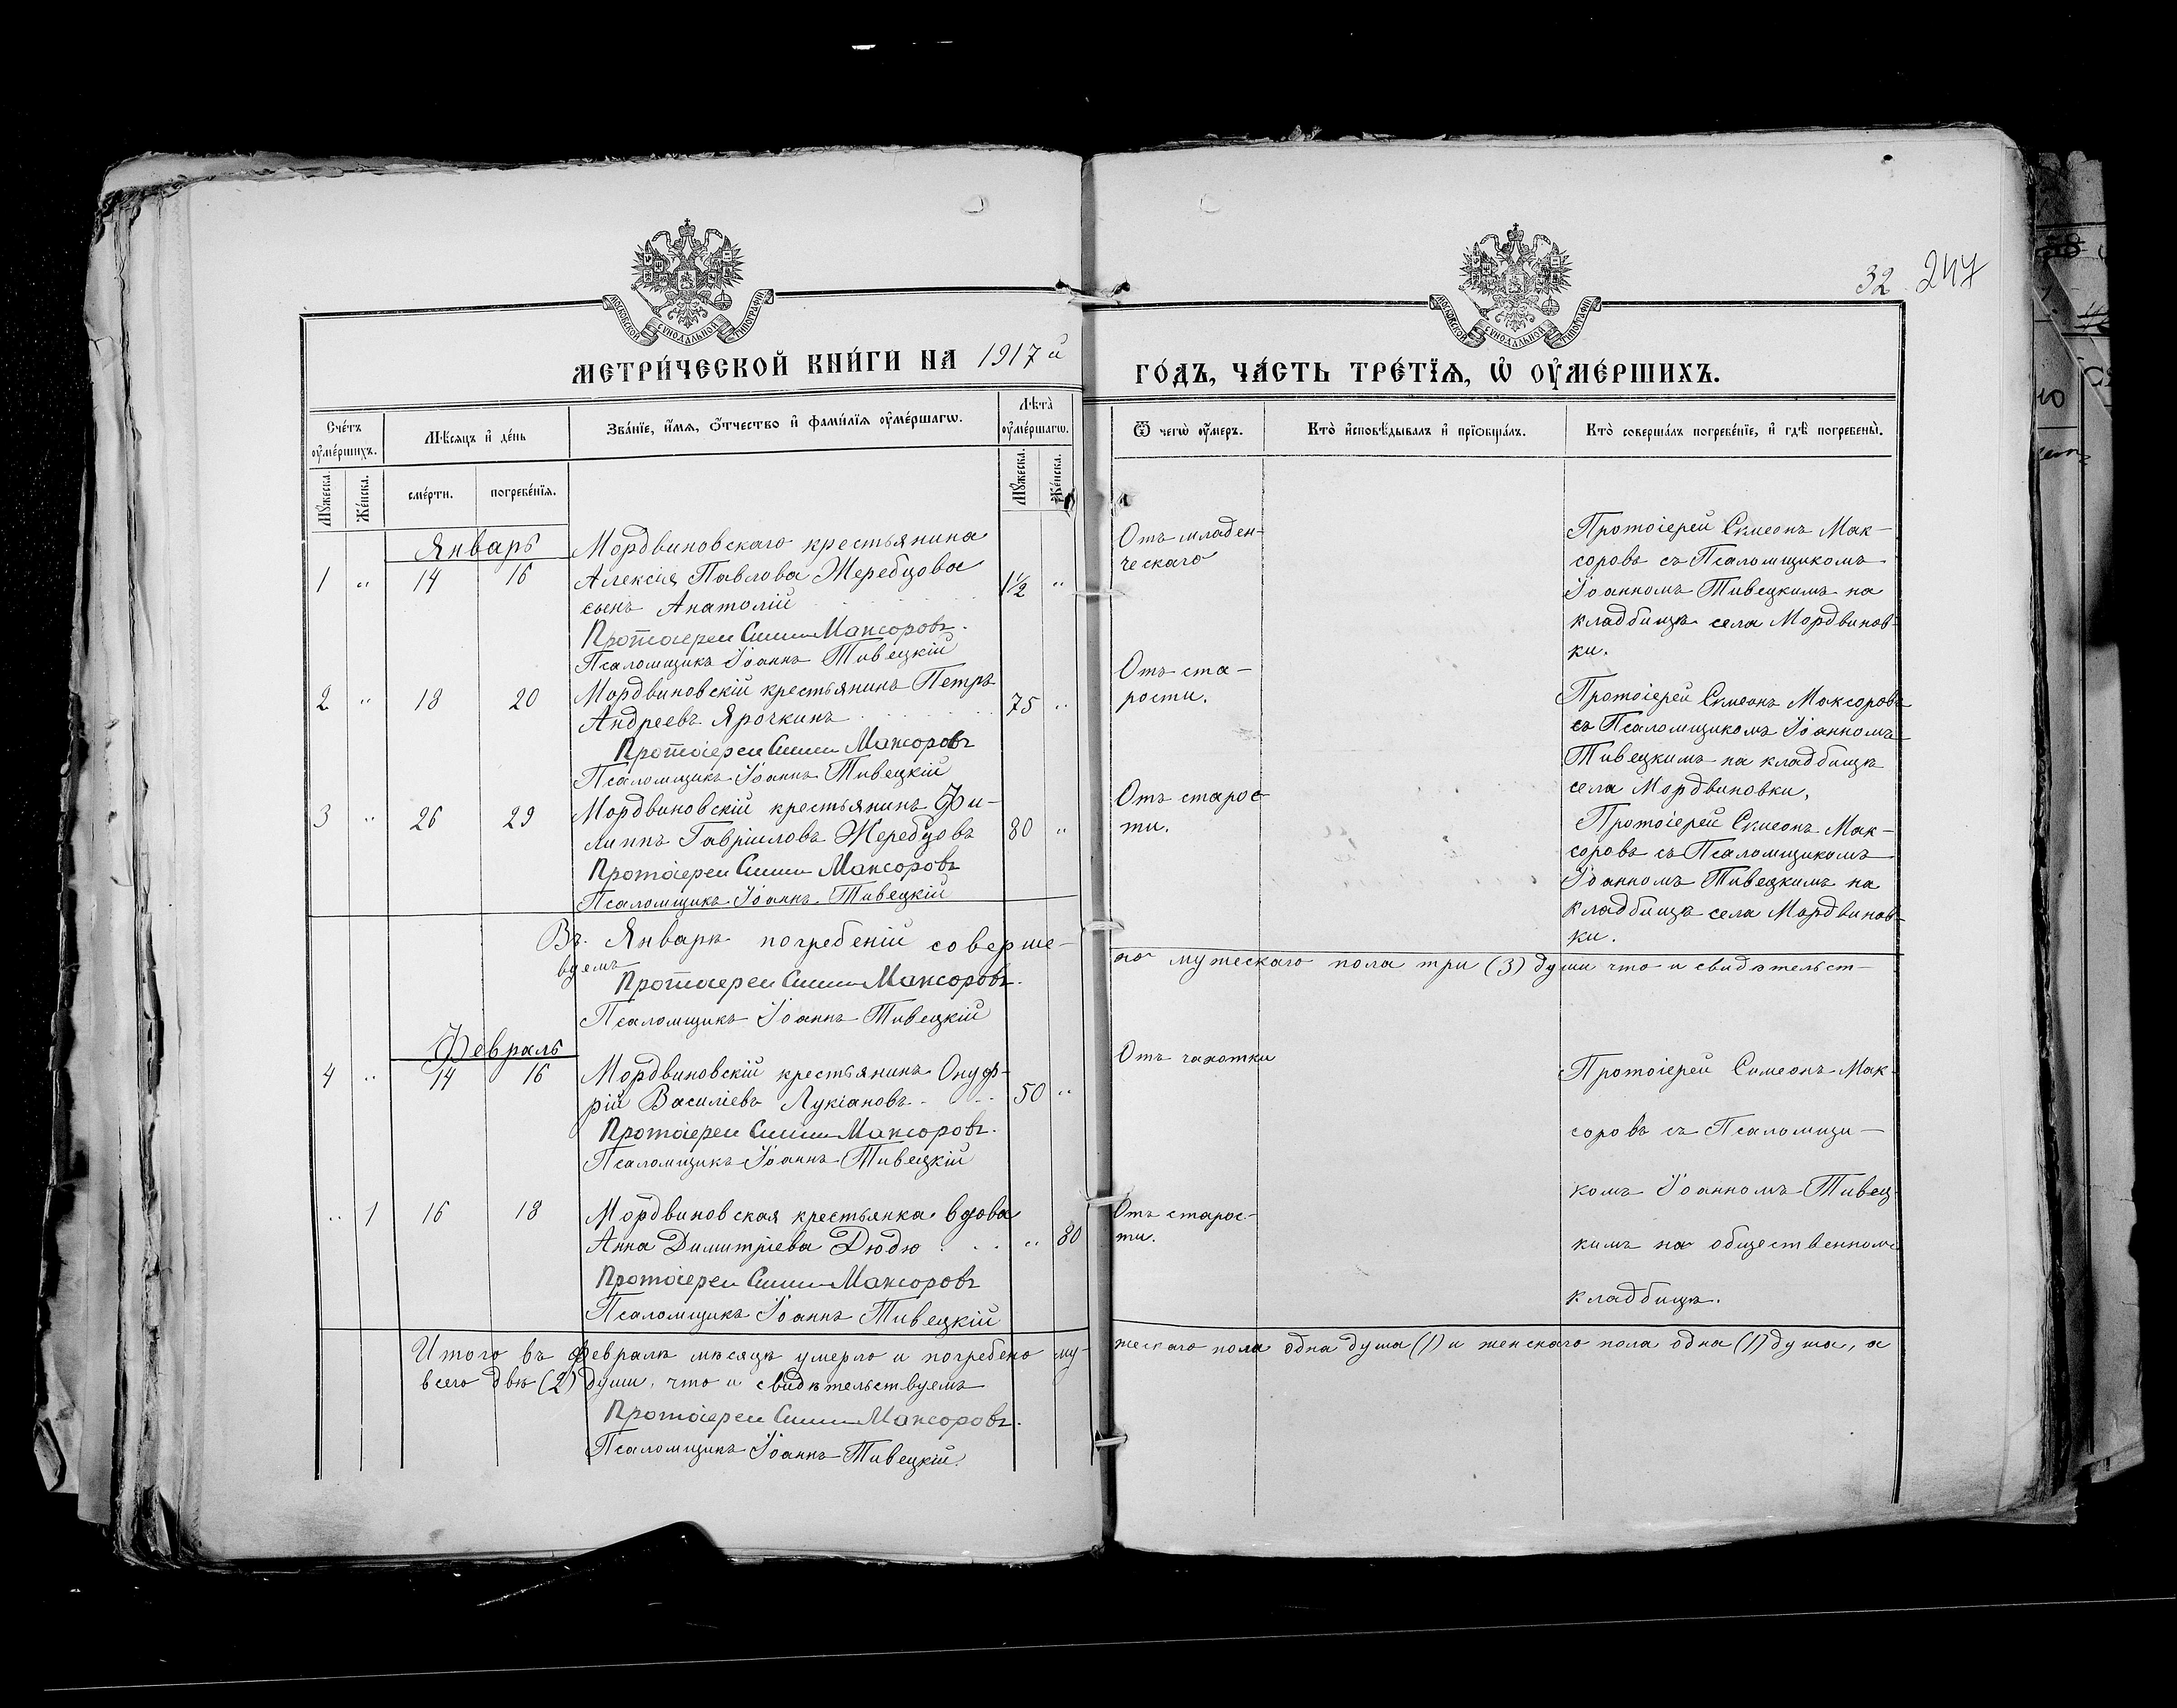 32 247
МОСКОВСКОЙ СѴНОДАЛЬНОЙ ТИПОГРАФІИ
МОСКОВСКОЙ СѴНОДАЛЬНОЙ ТИПОГРАФІИ
МЕТРИ́ЧЕСКОЙ КНИ́ГИ НА 1917 й
ГО́ДЪ, ЧА́СТЬ ТРЕ́ТЇѦ, Ѡ҆ ОУ҆МЕ́РШИХЪ.
Сче́тъ оу҆ме́ршихъ.
Мѣ́сяцъ и҆ де́нь
Зва́нїе, и҆́мѧ, ѻ҆́тчество и҆ фами́лїѧ оу҆ме́ршагѡ.
Лѣ́та̀ оу҆ме́ршагѡ.
Ѿ чегѡ̀ оу҆́меръ.
Кто̀ и҆сповѣ́дывалъ и҆ прїѻбща́лъ.
Кто̀ соверша́лъ погребе́нїе, и҆ гдѣ̀ погребены̀.
Мꙋ́жеска.
Же́нска.
сме́рти.
погребе́нїѧ.
Мꙋ́жеска.
Же́нска.
Январь
1 " 14 16
Мордвиновскаго крестьянина
Алексія Павлова Жеребцова
сынъ Анатолій
1½ "
Протоіерей Симеонъ Максоровъ.
Псаломщикъ Іоаннъ Тивецкій
Отъ младен-
ческаго
Протоіерей Симеонъ Мак-
соровъ съ Псаломщикомъ
Іоанномъ Тивецкимъ на
кладбищѣ села Мордвинов-
ки.
2 " 18 20
Мордвиновскій крестьянинъ Петръ
Андреевъ Ярочкинъ
75 "
Протоіерей Симеонъ Максоровъ
Псаломщикъ Іоаннъ Тивецкій
Отъ ста-
рости.
Протоіерей Симеонъ Максоровъ
съ Псаломщикомъ Іоанномъ
Тивецкимъ на кладбищѣ
села Мордвиновки.
3 " 26 29
Мордвиновскій крестьянинъ Фи-
липпъ Гавріиловъ Жеребцовъ
80 "
Протоіерей Симеонъ Максоровъ
Псаломщикъ Іоаннъ Тивецкій
Отъ старос-
ти.
Протоіерей Симеонъ Мак-
соровъ съ Псаломщикомъ
Іоанномъ Тивецкимъ на
кладбищѣ села Мордвинов-
ки.
Въ Январѣ погребеній соверше-
но мужескаго пола три (3) души что и свидѣтельст-
вуемъ
Протоіерей Симеонъ Максоровъ.
Псаломщикъ Іоаннъ Тивецкій
Февраль
4 " 14 16
Мордвиновскій крестьянинъ Онуф-
рій Василіевъ Лукіановъ
50 "
Протоіерей Симеонъ Максоровъ.
Псаломщикъ Іоаннъ Тивецкій
Отъ чахотки
Протоіерей Симеонъ Мак-
соровъ съ Псаломщи-
комъ Іоанномъ Тивец-
кимъ на общественномъ
кладбищѣ.
" 1 16 18
Мордвиновская крестьянка вдова
Анна Димитріева Дюдю
" 80
Протоіерей Симеонъ Максоровъ
Псаломщикъ Іоаннъ Тивецкій
Отъ старос-
ти.
Итого въ Февралѣ мѣсяцѣ умерло и погребено му-
жескаго пола одна душа (1) и женскаго пола одна (1) душа, а
всего двѣ (2) души, что и свидѣтельствуемъ
Протоіерей Симеонъ Максоровъ.
Псаломщикъ Іоаннъ Тивецкій.